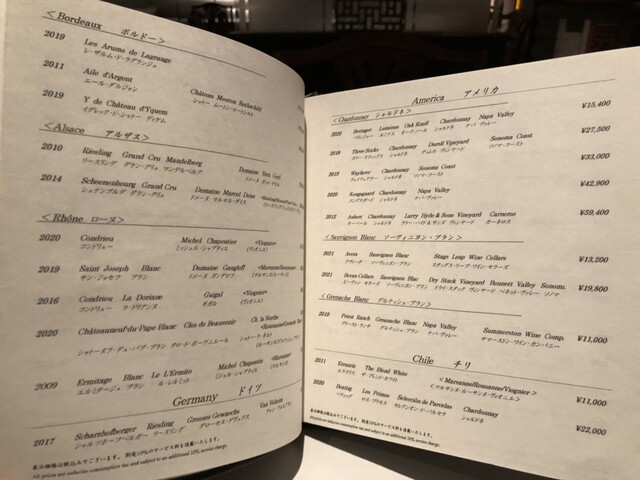 <Bordeaux ボルドー>
2019 Les Arums de Lagrange
レ・ザルム・ド・ラグランジュ
2011 Aile d'Argent Château Mouton Rothschild
エール・ダルジャン シャトー ムートン・ロートシルト
2019 Y de Château d'Yquem
イグレック・ド・シャトー ディケム
<Alsace アルザス>
2010 Riesling Grand Cru Mandelberg Domaine
リースリング グラン・クリュ マンデルベルグ ドメーヌ
2014 Schoenenbourg Grand Cru Domaine Marcel Deiss
シュナンブルグ グラン・クリュ ドメーヌ マルセル・ダイス
<Rhône ローヌ>
2020 Condrieu Michel Chapoutier <Viognier>
コンドリュー ミッシェル・シャプティエ (ヴィオニエ)
2019 Saint Joseph Blanc Domaine Gangloff
サン・ジョセフ ブラン ドメーヌ ガングロフ
2016 Condrieu La Doriane Guigal <Viognier>
コンドリュー ラ・ドリアンヌ ギガル (ヴィオニエ)
2020 Châteauneuf-du-Pape Blanc Clos de Beauvenir Ch. la Nerthe
シャトーヌフ・デュ・パプ・ブラン クロ・ド・ボーヴニエール シャトー・ラ・ネルト
2009 Ermitage Blanc Le L'Ermite Michel Chapoutier
エルミタージュ ブラン ル・レルミット ミッシェル・シャプティエ
Germany ドイツ
2017 Scharzhofberger Riesling Grosses Gewaechs Van Volxem
シャルツホーフベルガー リースリング グローセス・ゲヴェックス ファン・フォルクセン
表示価格は税込みでございます。別途10%のサービス料を頂戴いたします。
All prices are inclusive consumption tax and subject to an additional 10% service charge.
America アメリカ
<Chardonnay シャルドネ>
2020 Beringer Luminus Oak Knoll Chardonnay Napa Valley ¥15,400
ベリンジャー ルミナス オーク・ノール シャルドネ ナパ・ヴァレー
2018 Three Sticks Chardonnay Durell Vineyard Sonoma Coast ¥27,500
スリー・スティックス シャルドネ デュレル ヴィンヤード ソノマ・コースト
2019 Wayfarer Chardonnay Sonoma Coast ¥33,000
ウェイフェアラー シャルドネ ソノマ・コースト
2020 Kongsgaard Chardonnay Napa Valley ¥42,900
コングスガード シャルドネ ナパ・ヴァレー
2012 Aubert Chardonnay Larry Hyde & Sons Vineyard Carneros ¥59,400
オーベール シャルドネ ラリー・ハイド&サンズ ヴィンヤード カーネロス
<Sauvignon Blanc ソーヴィニヨン・ブラン>
2021 Aveta Sauvignon Blanc Stags Leap Wine Cellars ¥13,200
アヴェータ ソーヴィニヨン・ブラン スタッグス・リープ・ワイン・セラーズ
2021 Bevan Cellars Sauvignon Blanc Dry Stack Vineyard Bennett Valley Sonoma ¥19,800
ビーヴァン セラーズ ソーヴィニヨン・ブラン ドライ・スタック ヴィンヤード ベネット・ヴァレー ソノマ
<Grenache Blanc グルナッシュ・ブラン>
2019 Priest Ranch Grenache Blanc Napa Valley Summerston Wine Comp. ¥11,000
プリースト・ランチ グルナッシュ・ブラン ナパ・ヴァレー サマーストン・ワイン・カンパニー
Chile チリ
2011 The Blend White <Marsanne/Roussanne/Viognier> ¥11,000
ザ・ブレンド・ホワイト <マルサンヌ・ルーサンヌ・ヴィオニエ>
2020 Los Primos Selección de Parcelas Chardonnay ¥22,000
ロス・プリモス セレクシオン・デ・パルセラ シャルドネ
表示価格は税込みでございます。別途10%のサービス料を頂戴いたします。
All prices are inclusive consumption tax and subject to an additional 10% service charge.